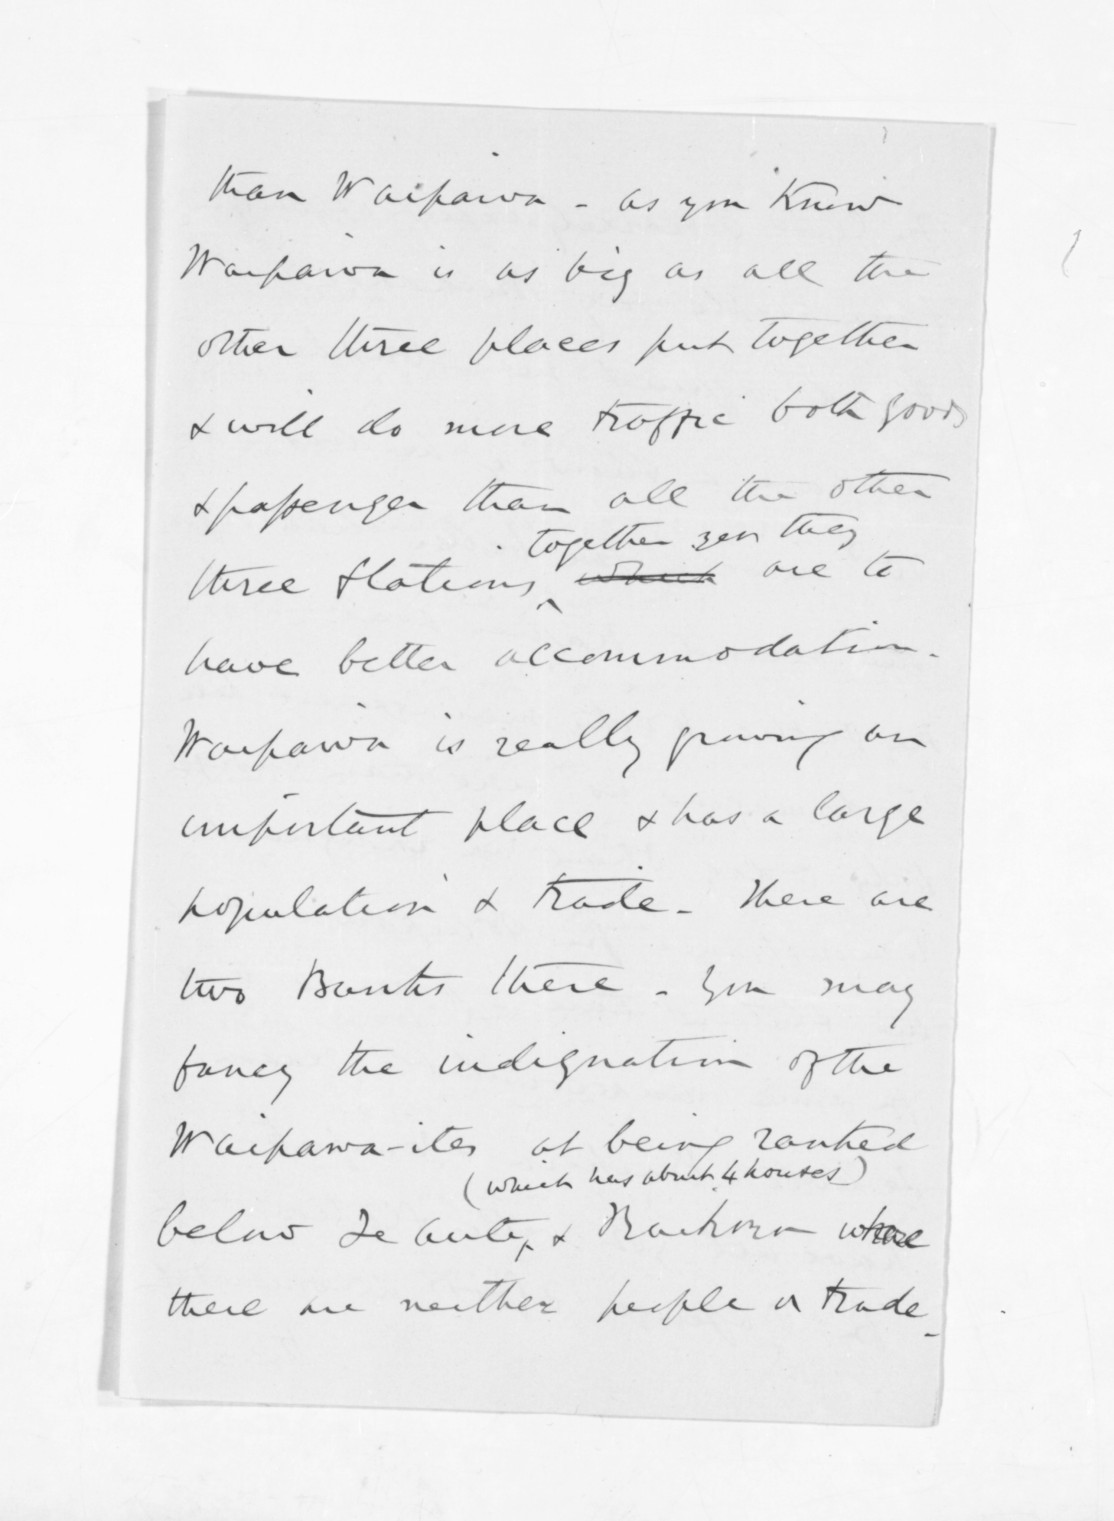 than Waipawa - as you know
Waipawa is as big as all the
other three places put together
& will do more traffic both goods
& passenger than all the other
together yet they
three Stations ^ which are to
have better accommodation -
Waipawa is really growing an
important place & has a large
population & trade - There are
two Banks there - You may
fancy the indignation of the
Waipawa-ites at being ranked
(which has about 4 houses)
below Te Aute ^ & Kaikora where
there are neither people or trade -